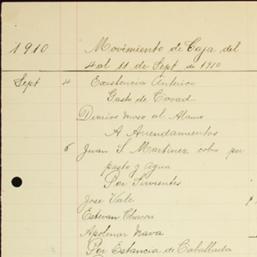 1910 Movimiento de Caja del
4 al 11 de Sept de 1910
Sept 4 Existencia Anterior
Gasto de
Dinero al Alamo
A Arrendamientos
6 Juan S Martinez cobro por
pasto y agua
Por Sirvientes
Jose Vale
Estevan Chacon
Apolinar Nava
Por Estancia de Caballada